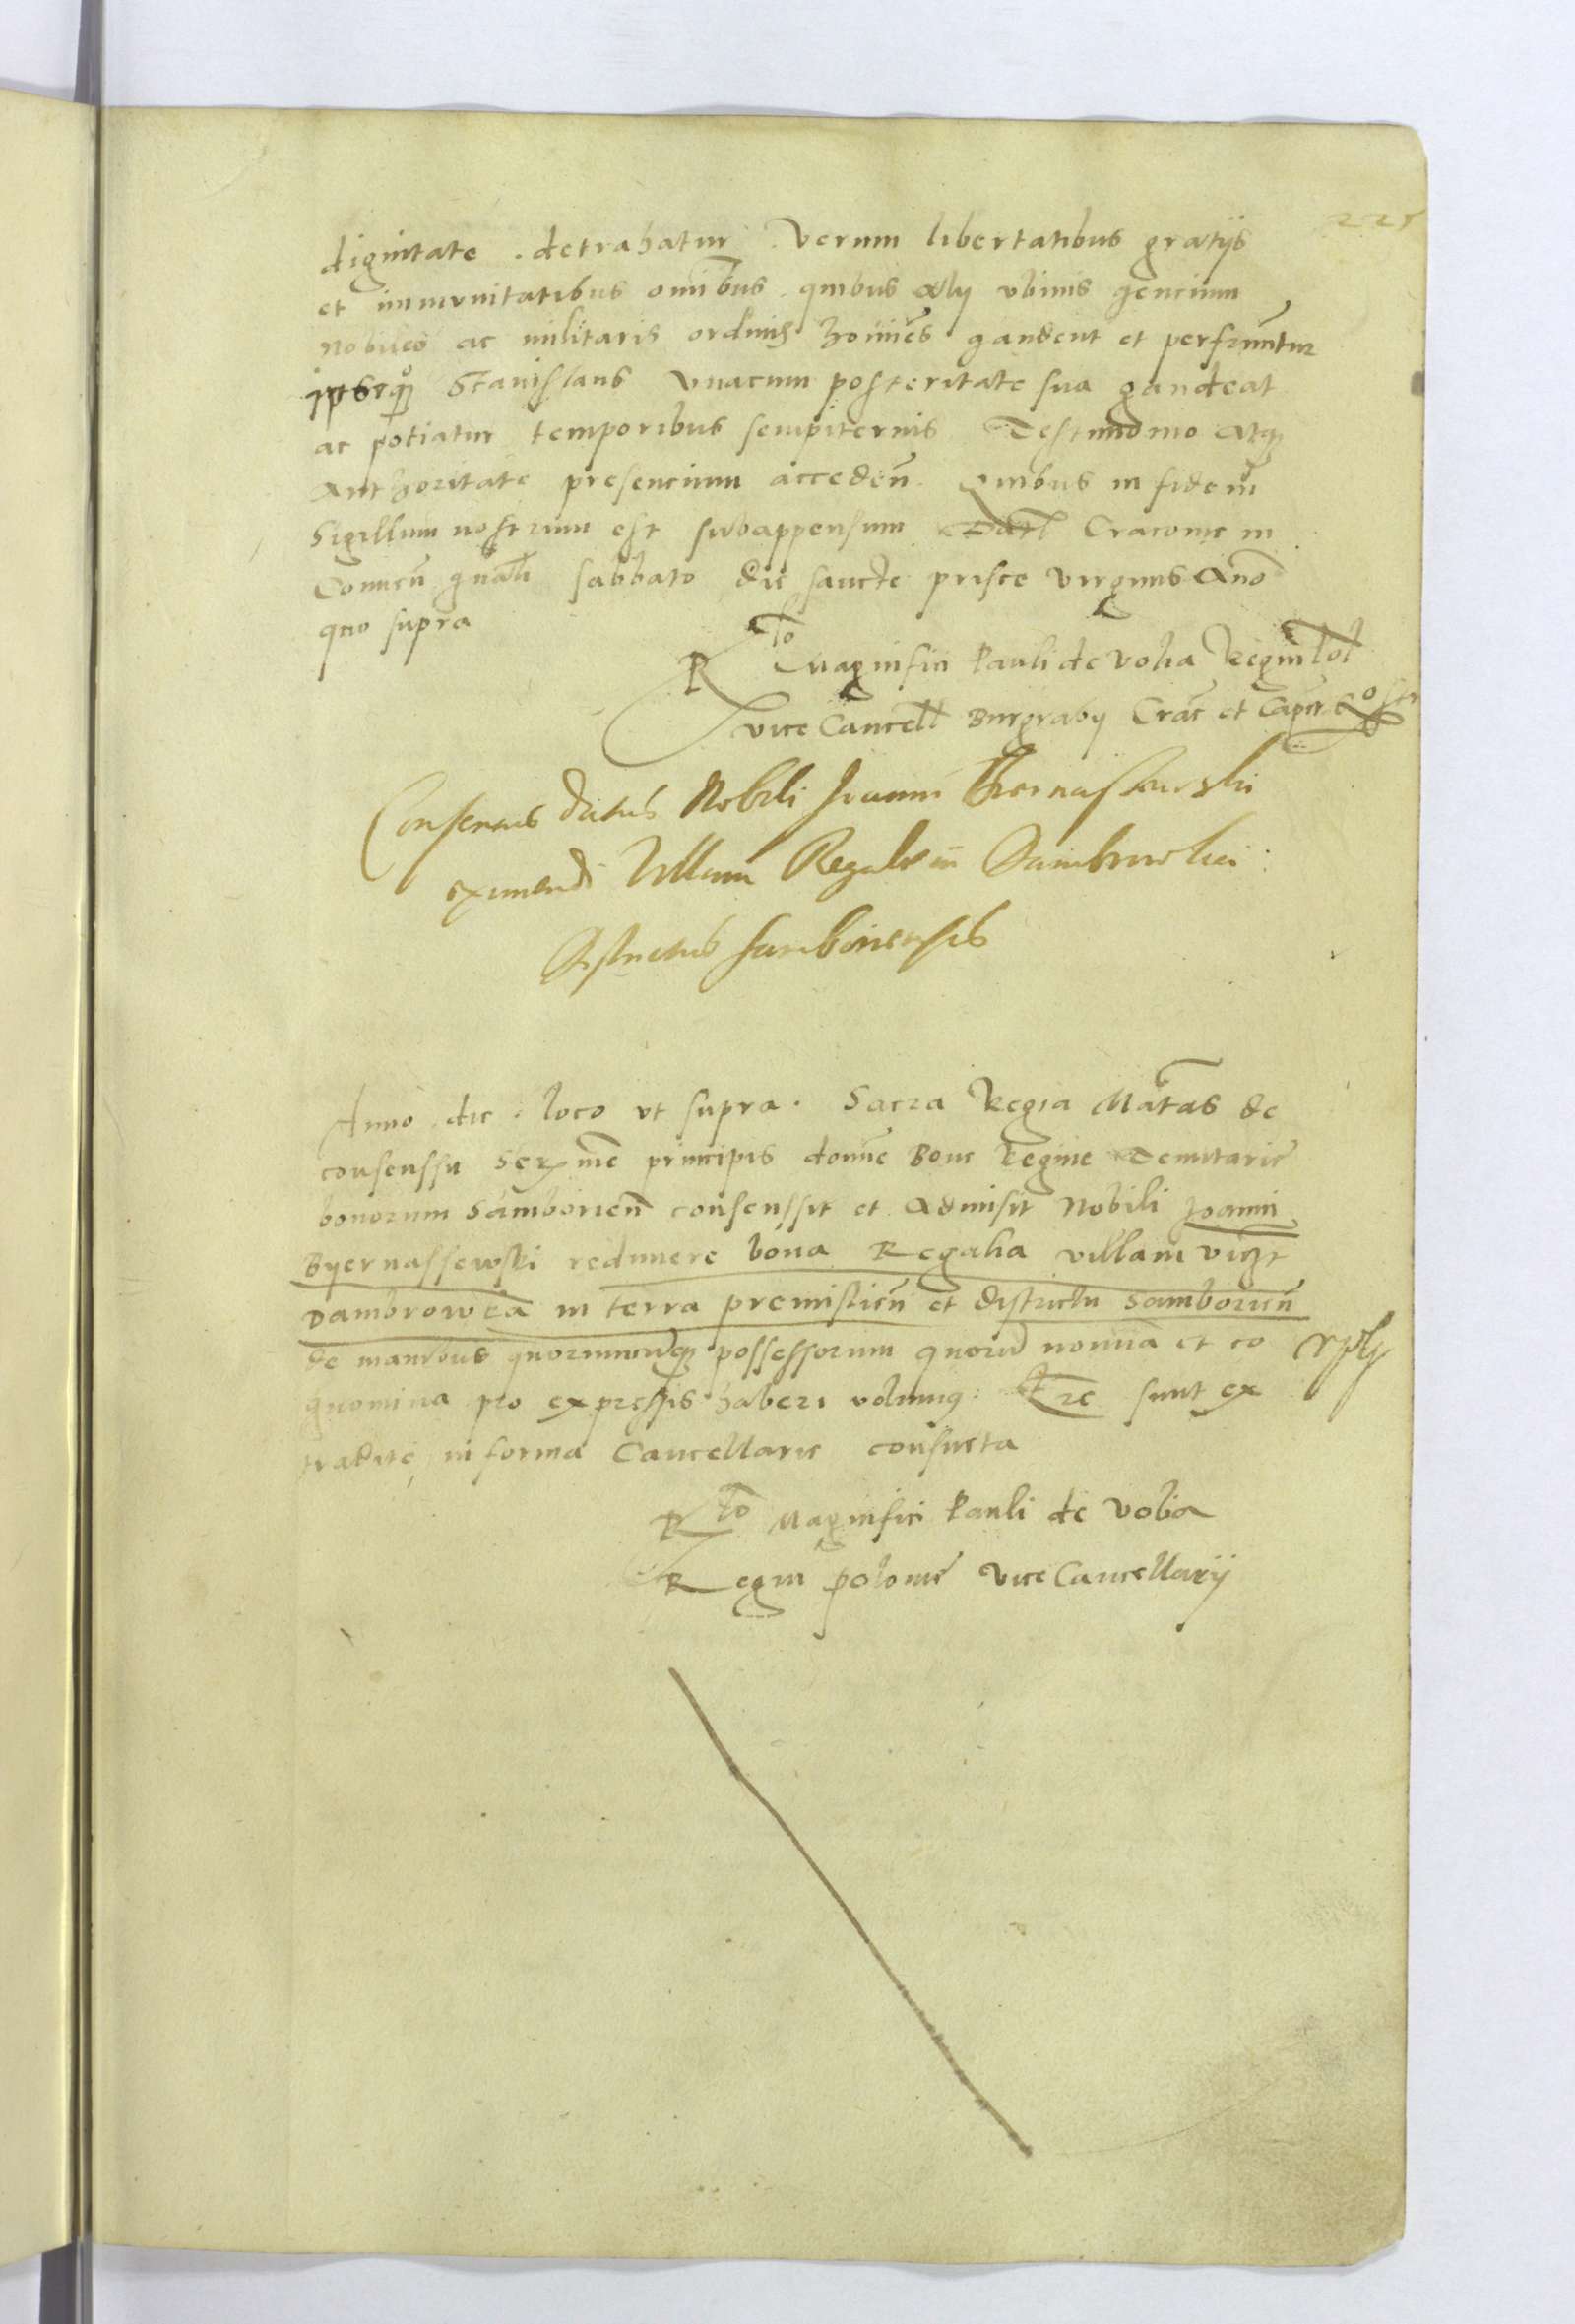 225
dignitate . detrahatur . Verum libertatibus gratijs
et immunitatibus omībus . quibus alij vbiuis gencium
nobiles ac militaris ordinis homines gaudent et perfruuntur
Stanislaus vnacum posteritate sua gaudeat
ac potiatur temporibus sempiternis Testimonio atq
Authoritate presencium acceden̄ . quibus in fidem
Sigillum nostrum est subappensum Datt Cracouie in
Conuen̄ gnali sabbato die sancte prisce virginis Año
quo supra
Rto Magnifici Pauli de Volia Regni Pol
vice Cancell Burgrabij Crac et Capit
Consensus datus Nobili Joanni Biernaszewski
eximendi Villam Regalem Dambrowka
districtus Samboriensis
Anno . die . loco vt supra . Sacra Regia Mātas de
consenssu Serme principis domne Bone Regine Tenutarie
bonorum Samborien̄ consenssit et admisit Nobili Joanni
Byernassewski redimere bona Regalia villam vizt
Dambrowka in terra premislien̄ et districtu Samborien̄
de manibus quorumcunq possessorum quorum nomina et co
gnomina pro expressis haberi volumus . Lre sunt ex
tradite in forma Cancellarie consueta
Rto Magnifici Pauli de Volia
Regni polonie Vice Cancellarij